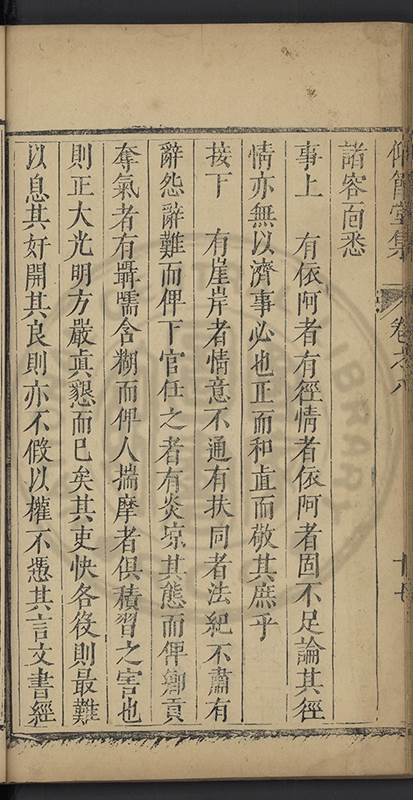 仰節堂集 卷之八 十七
諸容面悉
事上 有依阿者有徑情者依阿者固不足論其徑
情亦無以濟事必也正而和直而敬其庶乎
接下 有崖岸者情意不通有扶同者法紀不肅有
辭怨辭難而俾下官任之者有炎凉其態而俾鄉貢
奪氣者有囁嚅含糊而俾人揣摩者俱積習之害也
則正大光明方嚴眞懇而已矣其吏快各役則最難
以息其奸開其良則亦不假以權不憑其言文書經